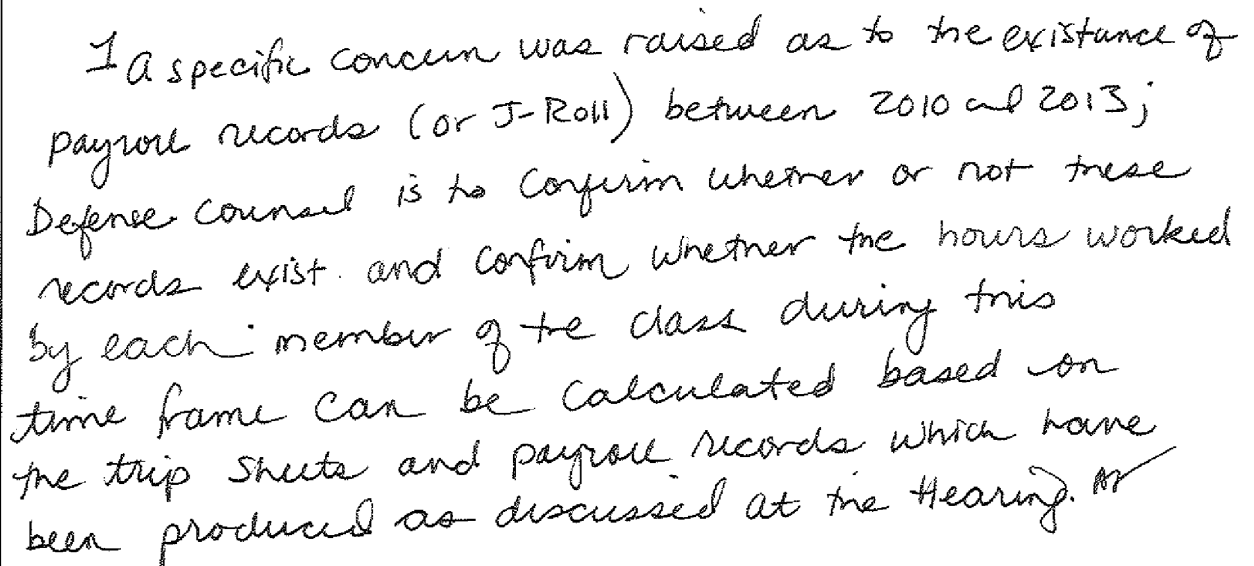 1 a specific concern was raised as to the existance of
payroll records (or J-Roll) between 2010 and 2013;
Defense Counsel is to Confirm whether or not these
records exist. and confirm whether the hours worked
by each member of the class during this
time frame can be calculated based on
the trip sheets and payroll records which have
been produced as discussed at the Hearing.